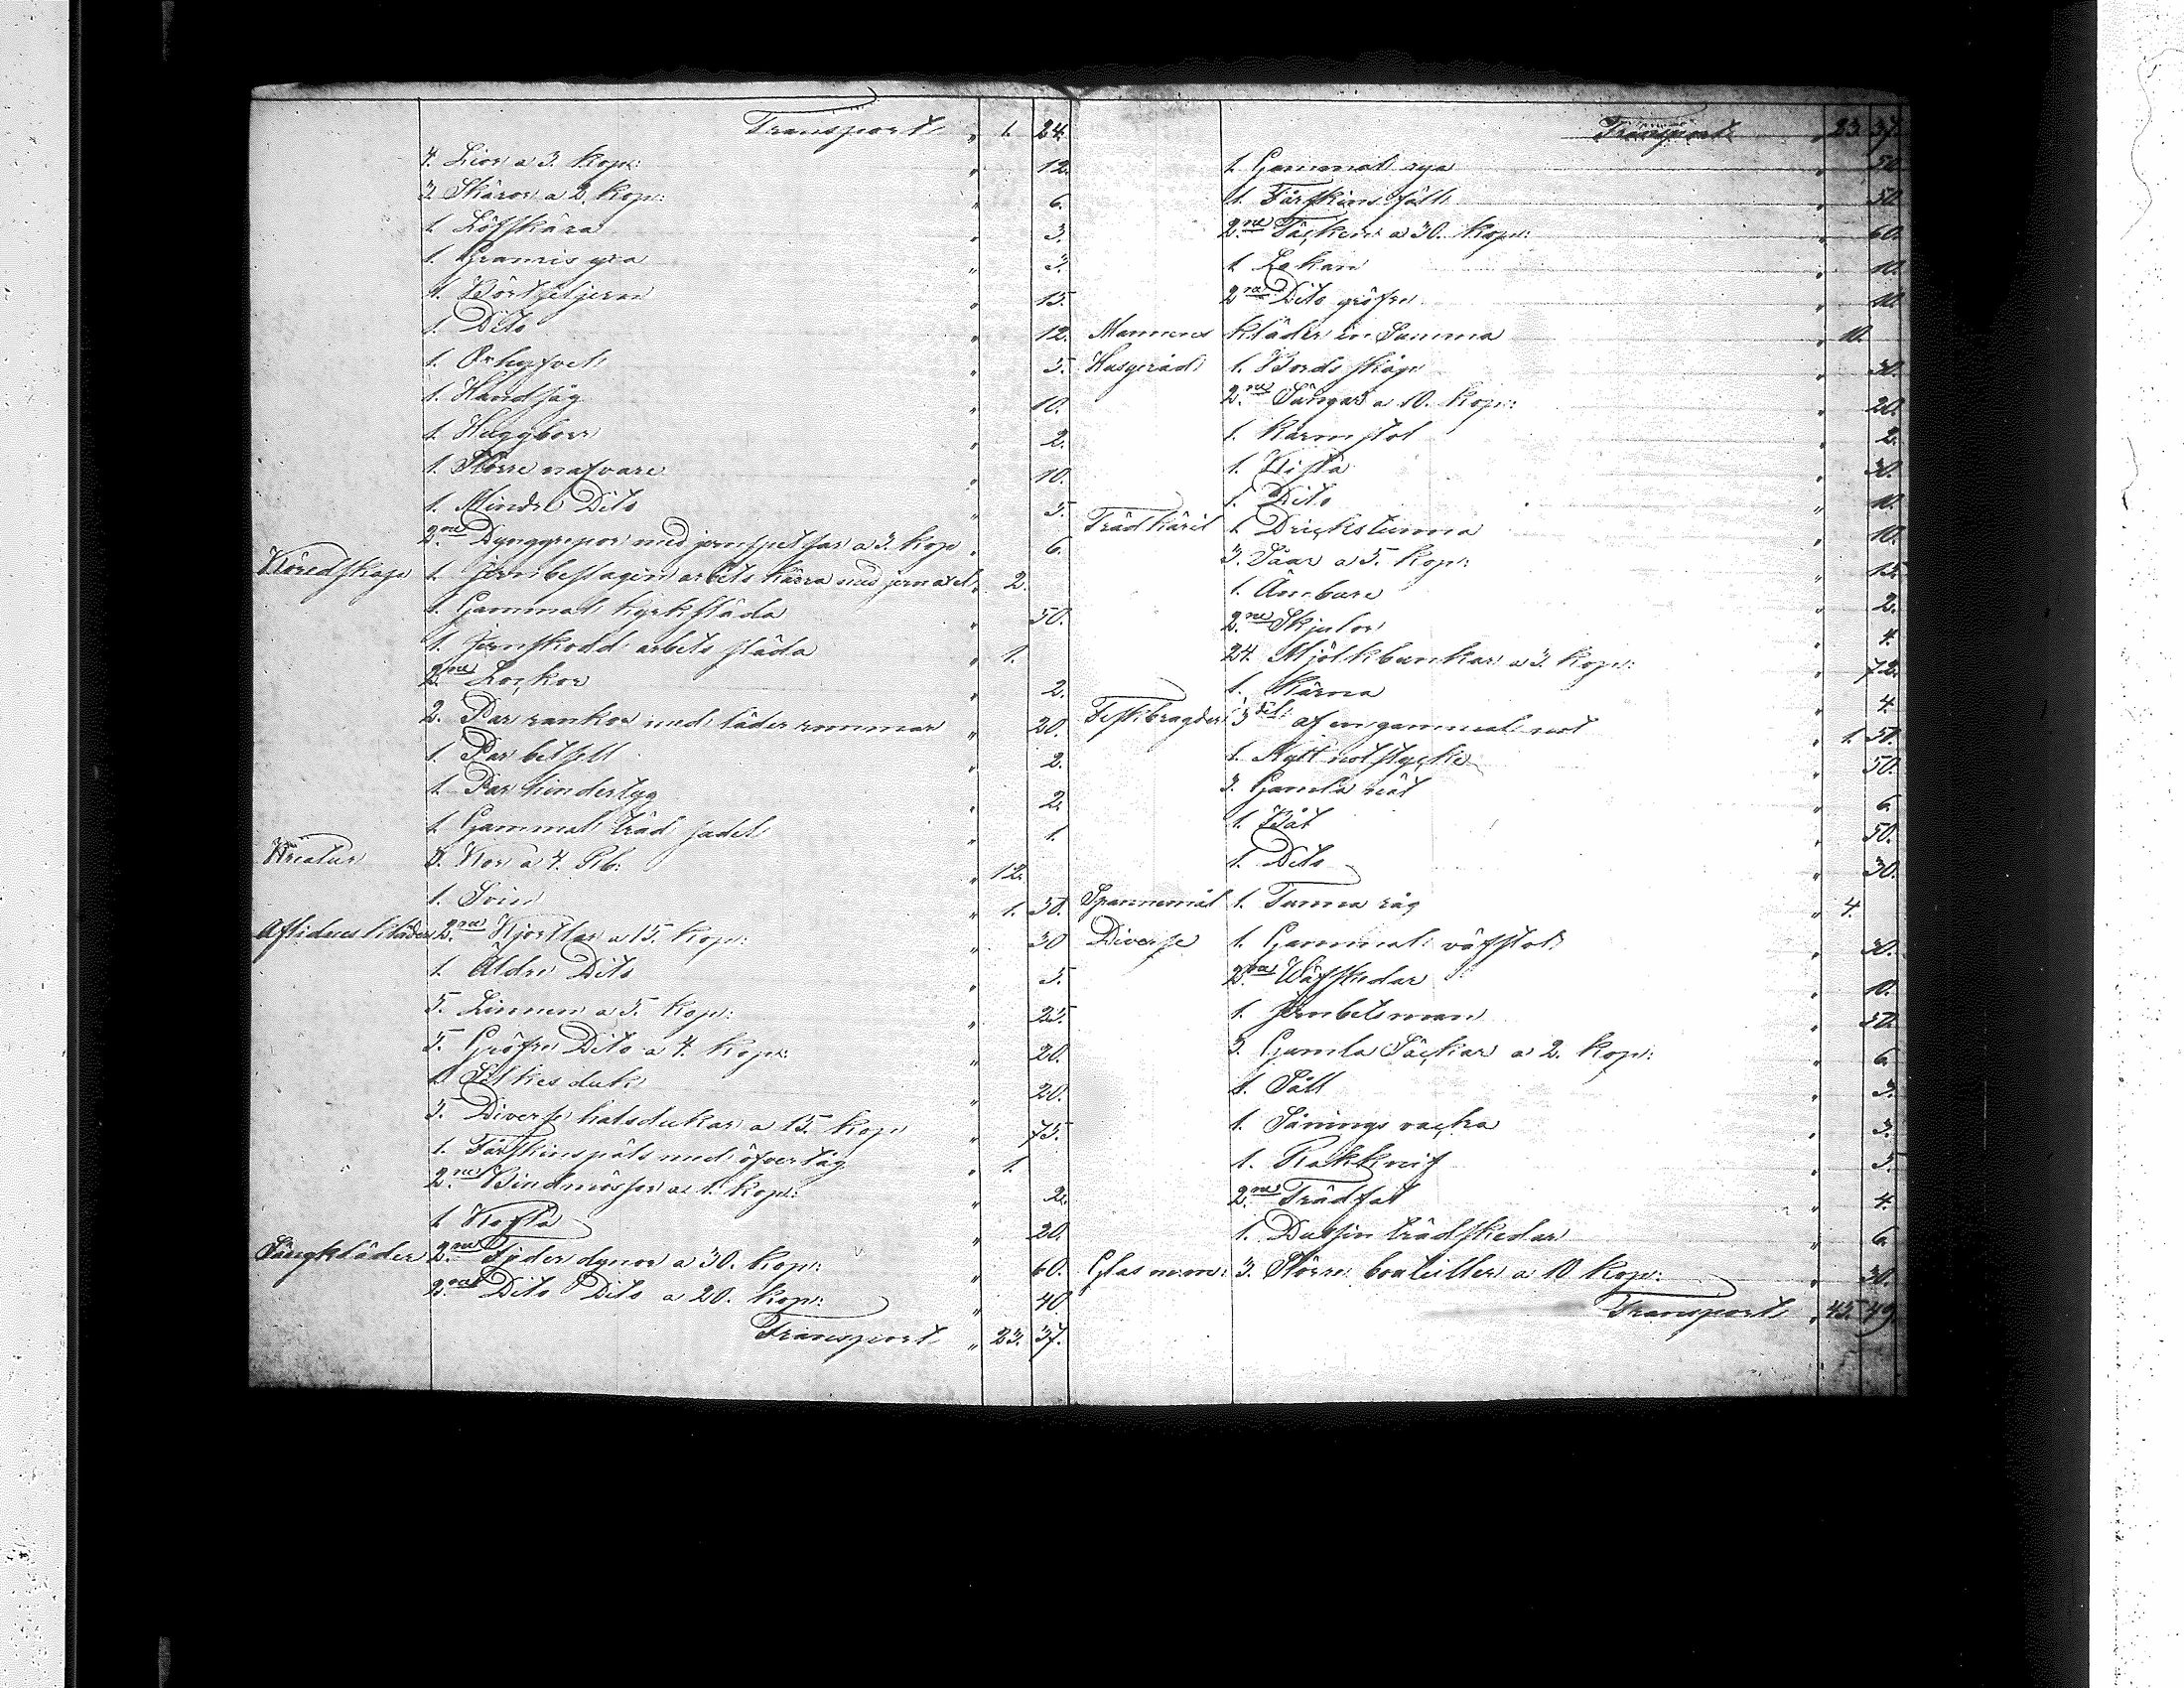 Transport „ 1. 24.
4. Lior a 3. kop: „ 12.
3. Skäror a 2. kop: „ 6.
1. Löfskära „ 3.
1. Granris yxa „ 3.
1. „ 15.
1. Dito „ 12.
1. „ 5.
1. Handsåg „ 10.
1. Huggborr „ 2.
1. Större nafvare „ 10.
1. Mindre Dito „ 5.
2ne Dynggrepor med jernspetsar a 3. kop „ 6.
Köredskap 1. Jernbeslagen arbets kärra med jernaxel „ 2.
1. Gammal kyrksläda „ 50.
1. Jernskodd arbets släda „ 1.
2ne Lockor „ 2.
2. Par rankor med läder rommar „ 20.
1. Par betsell „ 2.
1. Par hindertyg „ 2.
1. Gammal träd sadel „ 1.
Kreatur 3. Kor a 4. Rb. „ 12.
1. Svin „ 1. 50.
Aflidnes kläder 2ne Kjortlar a 15. kop: „ 30
1. Äldre Dito „ 5.
5. Linnen a 5. kop: „ 25.
5. Gröfre Dito a 4. kop: „ 20.
1. Silkes duk „ 20.
5. Diverse halsdukar a 15. kop „ 75.
1. Fårskinspäls med öfvertåg „ 1.
2ne Bindmössor a 1. kop: „ 2.
1. Kofta „ 20.
Sängkläder 2ne Fjäder dynor a 30. kop: „ 60.
2ne Dito Dito a 20. kop: „ 40.
Transport „ 23. 37.
Transport „ 23. 37.
1. Gammal rya „ 50.
1. Fårskins fäll „ 50.
2ne Täcken a 30. kop: „ 60.
1. Lakan „ 10.
2ne Dito gröfre „ 10.
Mannens kläder en Summa „ 10.
Husgeråd 1. Bords skåp „ 30.
2ne Sängar a 10. kop: „ 20.
1. Karmstol „ 2.
1. Kista „ 30.
1. Dito „ 10.
Trädkäril 1. Drickstunna „ 10.
3. Såar a 5. kop: „ 15.
1. Ämbare „ 2.
2ne Skjulor „ 4.
24. Mjölkbunkar a 3. kop: „ 72.
1. Kärna „ 4.
Fiskbragder 3del af en gammal not „ 1. 50.
1. Nytt notstycke „ 50.
3. Gamla nät „ 6.
1. Båt „ 50.
1. Dito „ 30.
Spannemål 1. Tunna råg „ 4.
Diverse 1. Gammal väfstol „ 30.
2ne Wäfskedar „ 10.
1. Jernbetsman „ 50.
3. Gamla Säckar a 2. kop: „ 6.
1. Såll „ 3.
1. Sånings vacka „ 3.
1. Rakknif „ 5.
2ne Trädfat „ 4.
1. Dussin trädskedar „ 6.
Glas m.m: 3. Större bouteiller a 10 kop: „ 30.
Transport „ 45. 49.